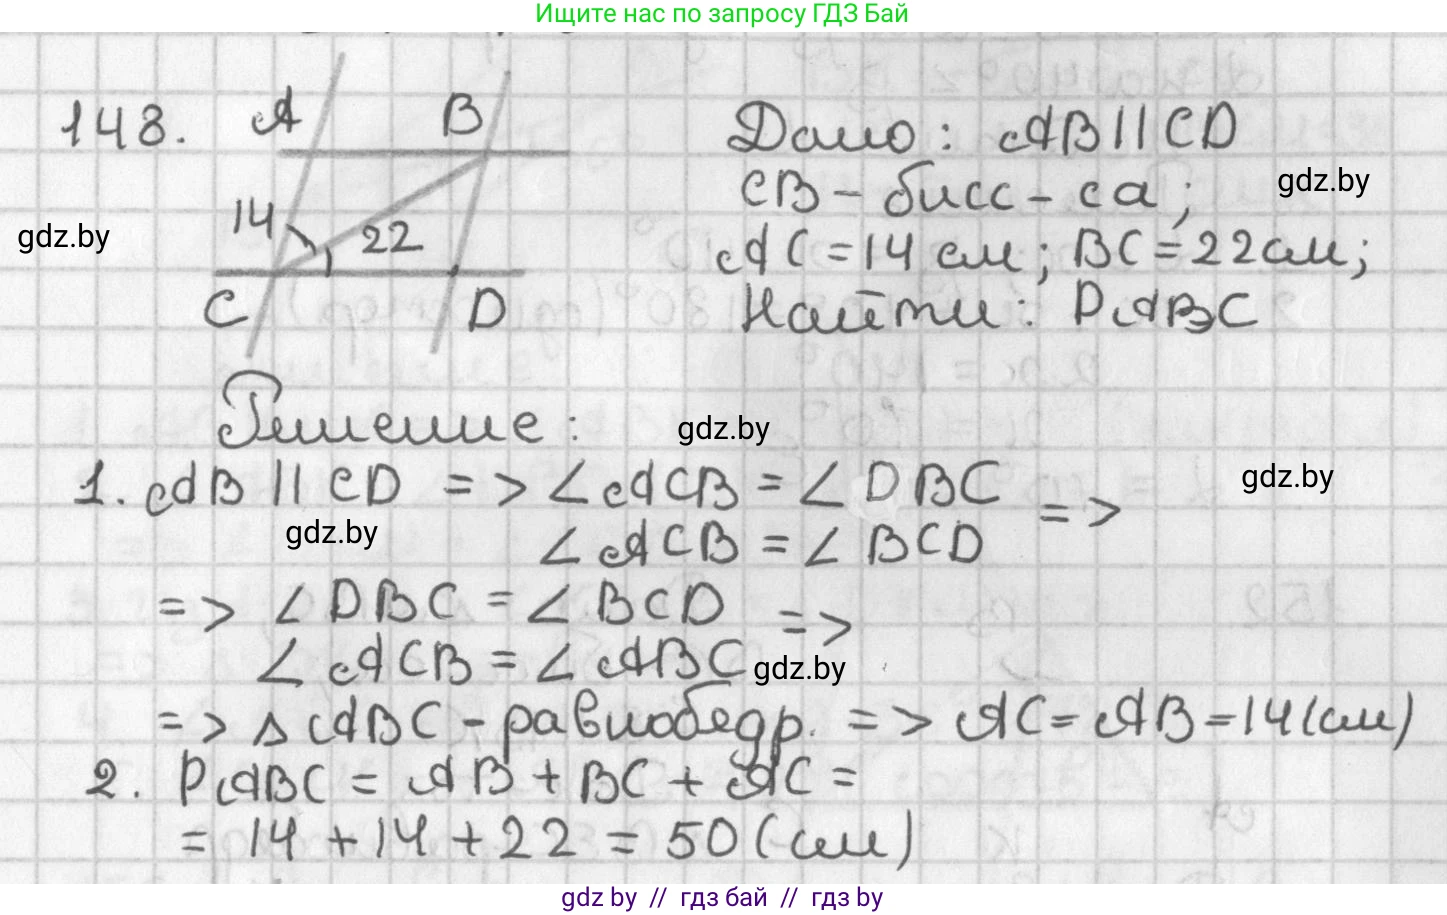 Ищите нас по запросу ГДЗ Бай
148.
A B
14
22
C D
Дано: AB||CD
CB - бисс-са;
AC = 14 см; BC = 22 см;
Найти: PABC
gdz.by
gdz.by
Решение:
gdz.by
1. AB || CD => ∠ACB = ∠DBC
∠ACB = ∠BCD =>
gdz.by
gdz.by
=> ∠DBC = ∠BCD =>
∠ACB = ∠ABC
gdz.by
=> ΔABC - равнобедр. => AC = AB = 14 (см)
2. PABC = AB + BC + AC =
= 14 + 14 + 22 = 50 (см)
gdz by // гдз бай // гдз by